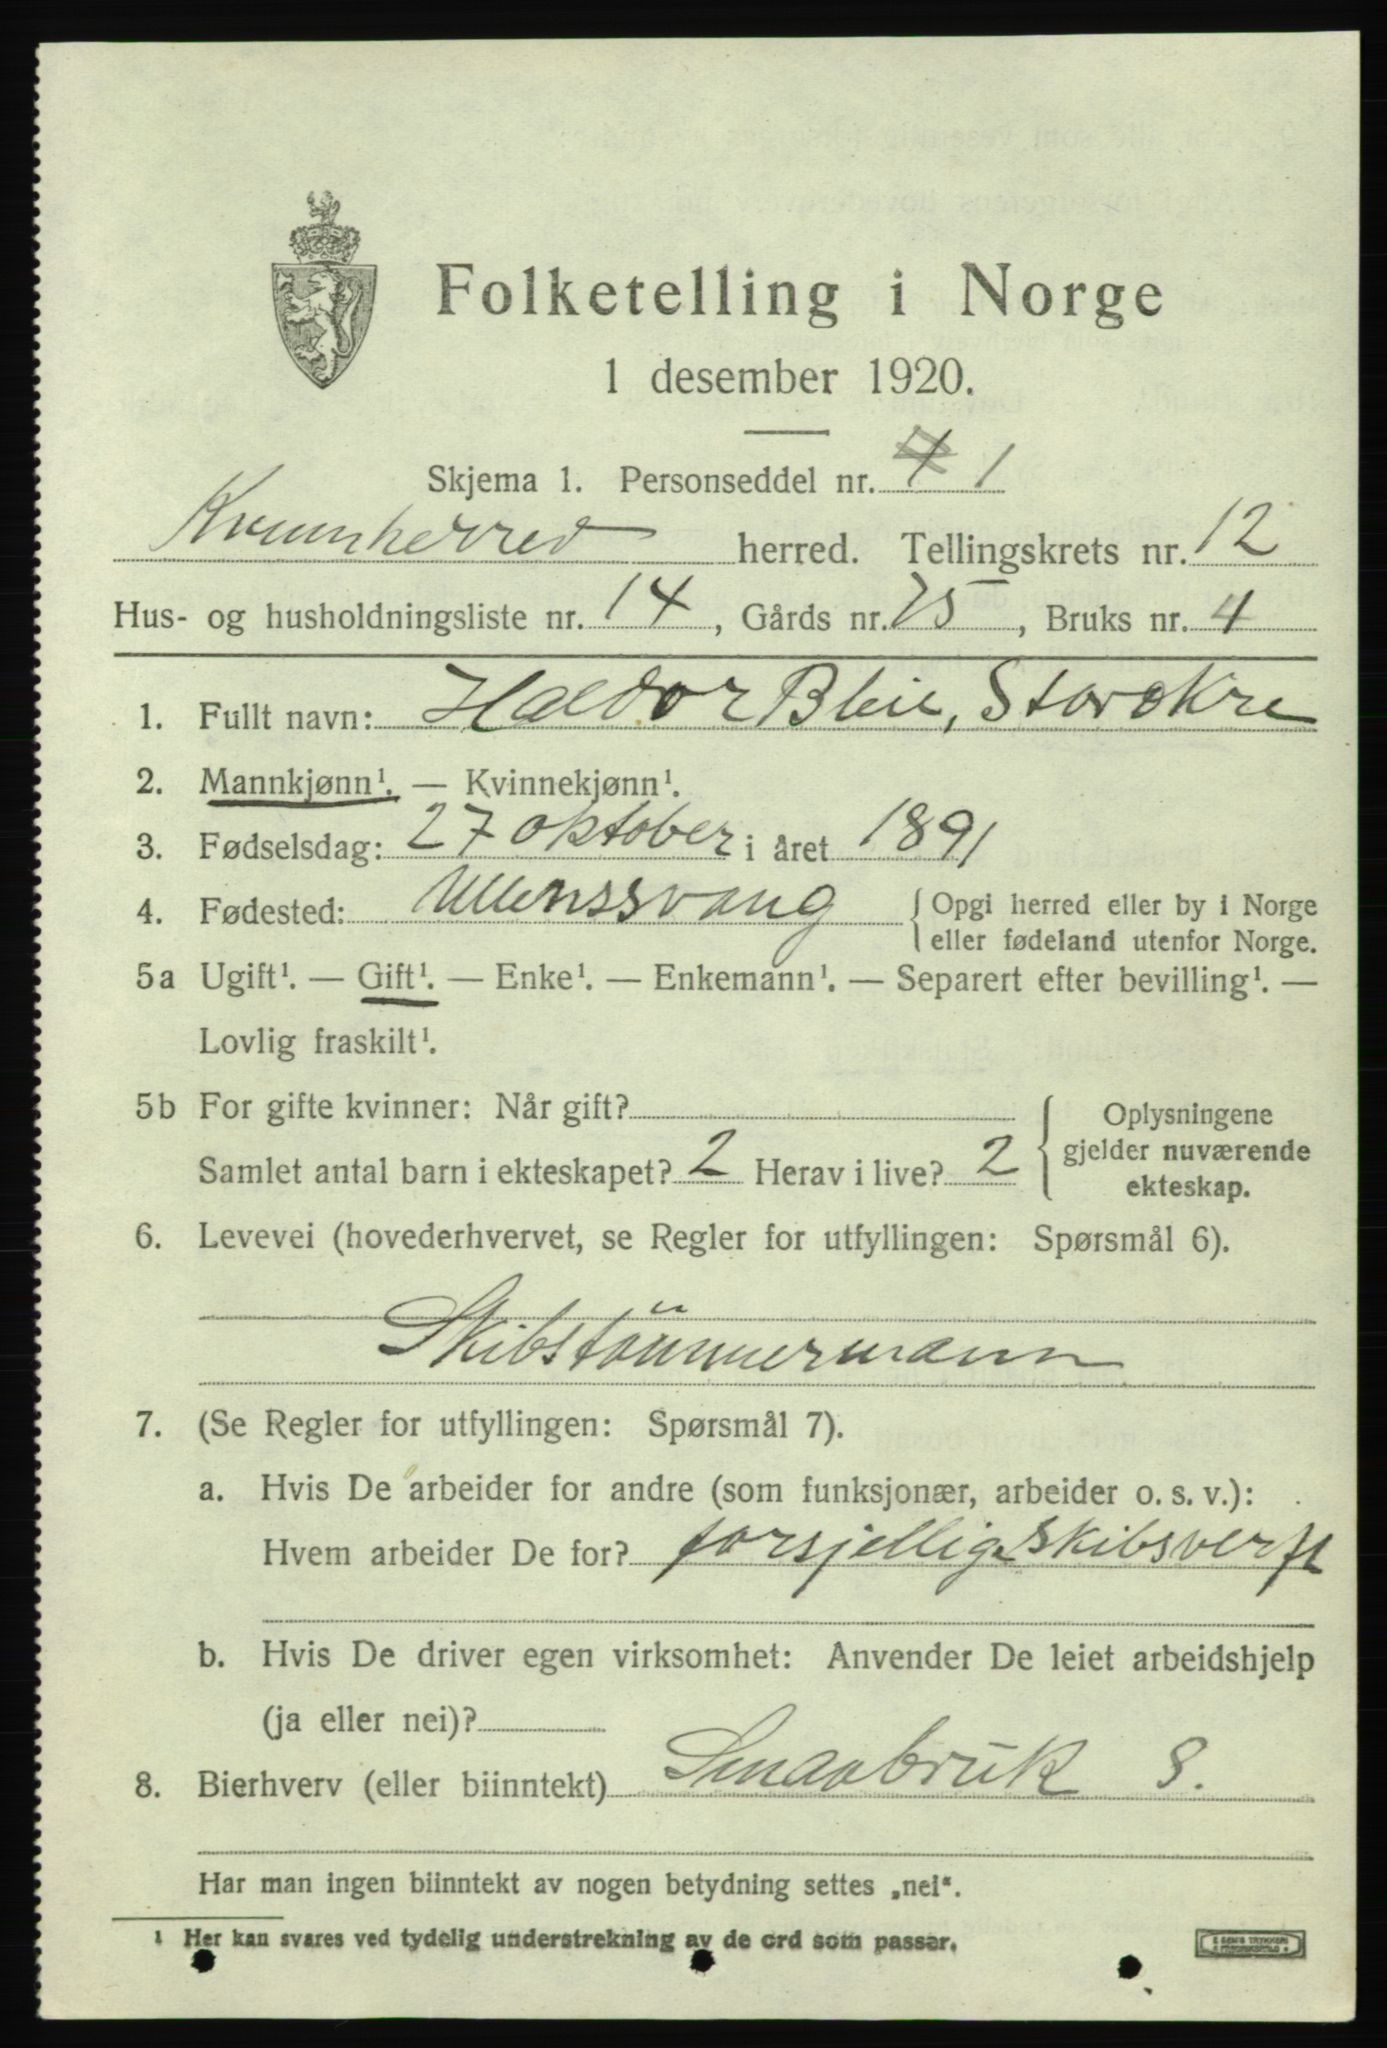 Folketelling i Norge
1 desember 1920.
Skjema 1. Personseddel nr. 1
Kvinnherred herred. Tellingskrets nr. 12
Hus- og husholdningsliste nr. 14, Gårds nr. 75, Bruks nr. 4
1. Fullt navn: Haldor Bleie, Storøkre
2. Mannkjønn¹. — Kvinnekjønn¹.
3. Fødselsdag: 27 oktober i året 1891
4. Fødested: Ullensvang { Opgi herred eller by i Norge
eller fødeland utenfor Norge.
5a Ugift¹. — Gift¹. — Enke¹. — Enkemann¹. — Separert efter bevilling¹. —
Lovlig fraskilt¹.
5b For gifte kvinner: Når gift?
Samlet antal barn i ekteskapet? 2 Herav i live? 2
{ Oplysningene
gjelder nuværende
ekteskap.
6. Levevei (hovederhvervet, se Regler for utfyllingen: Spørsmål 6).
Skibstömmermann
7. (Se Regler for utfyllingen: Spørsmål 7).
a. Hvis De arbeider for andre (som funksjonær, arbeider o. s. v.):
Hvem arbeider De for? forsjellige skibsverft
b. Hvis De driver egen virksomhet: Anvender De leiet arbeidshjelp
(ja eller nei)?
8. Bierhverv (eller biinntekt) Smaabruk S.
Har man ingen biinntekt av nogen betydning settes „nei“.
¹ Her kan svares ved tydelig understrekning av de ord som passer.